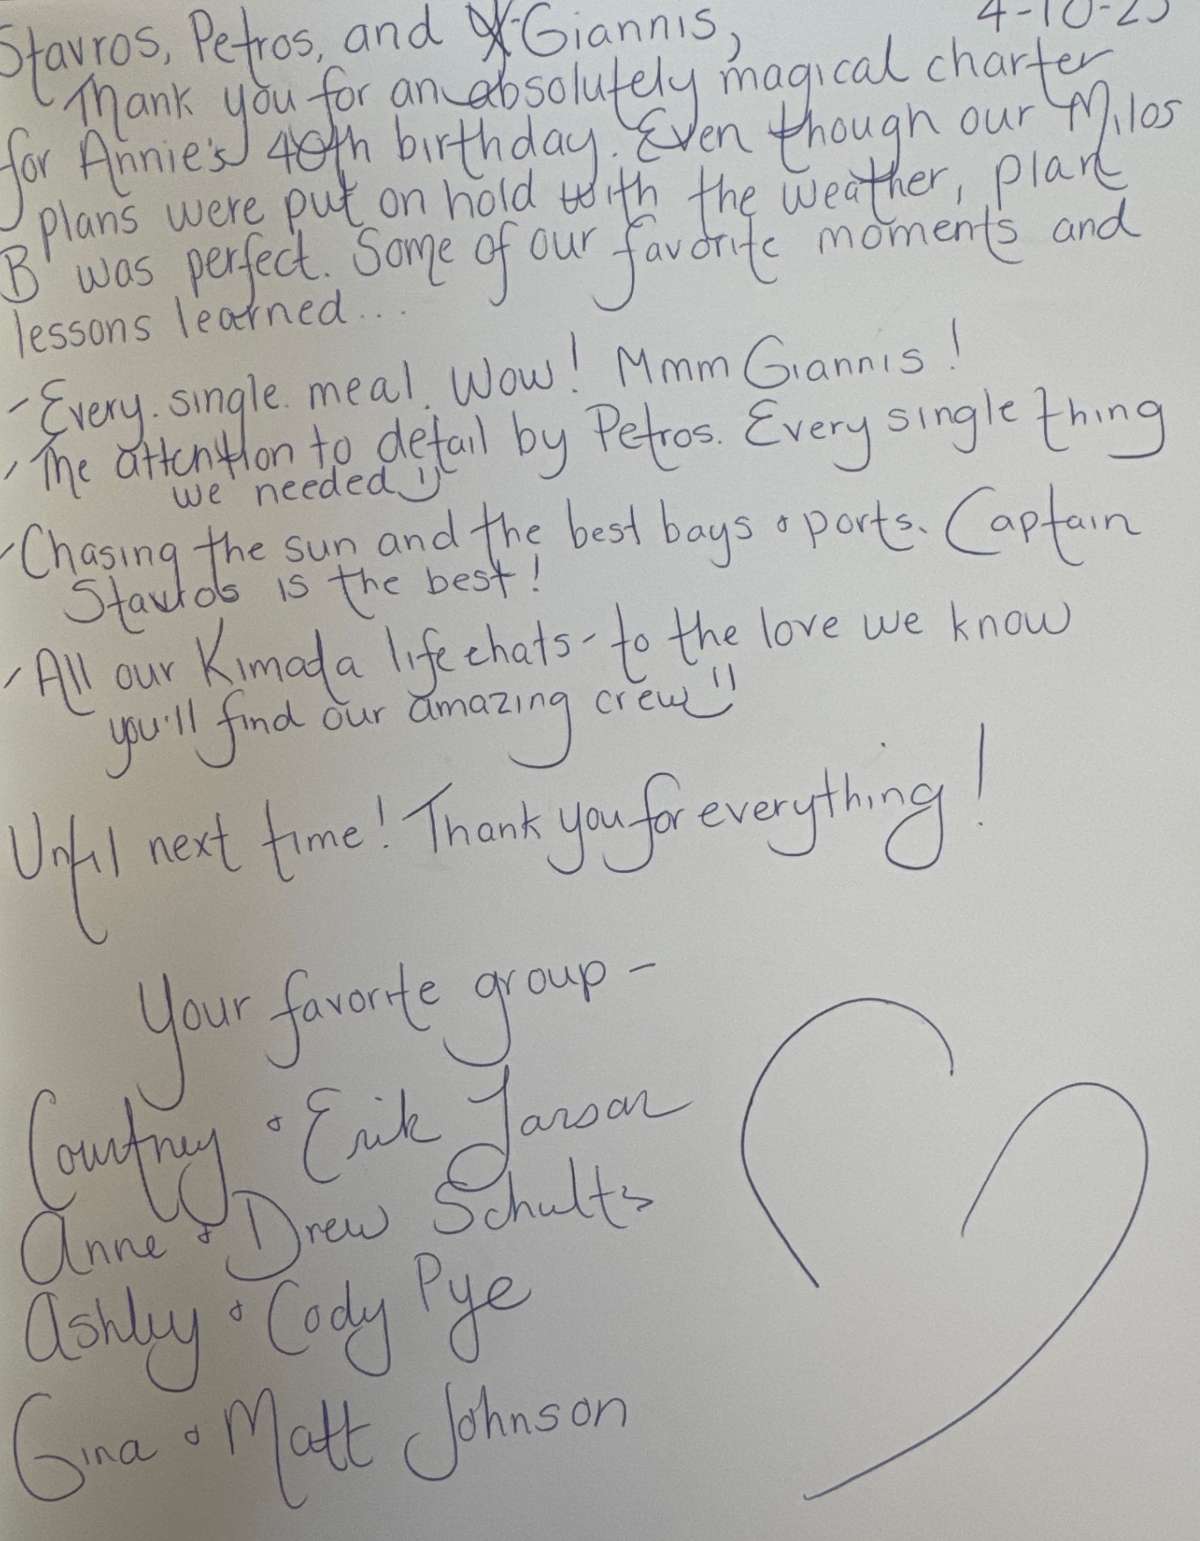 4-10-25
Stavros, Petros, and Giannis,
Thank you for an absolutely magical charter
for Annie's 40th birthday. Even though our Milos
plans were put on hold with the weather, plan
B was perfect. Some of our favorite moments and
lessons learned...
- Every. single. meal. Wow! Mmm Giannis!
- The attention to detail by Petros. Every single thing
we needed :)
- Chasing the sun and the best bays & ports. Captain
Stavros is the best!
- All our Kimada life chats - to the love we know
you'll find our amazing crew :)
Until next time! Thank you for everything!
Your favorite group -
Courtney & Erik Larson
Anne & Drew Schultz
Ashley & Cody Pye
Gina & Matt Johnson